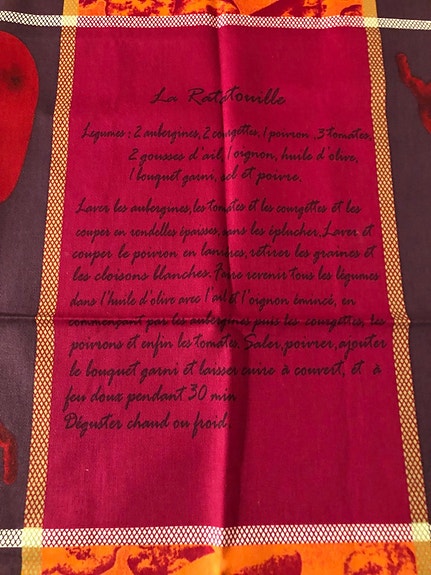 La Ratatouille
Légumes : 2 aubergines, 2 courgettes, 1 poivron, 3 tomates,
2 gousses d'ail, 1 oignon, huile d'olive,
1 bouquet garni, sel et poivre.
Laver les aubergines, les tomates et les courgettes et les
couper en rondelles épaisses, sans les éplucher. Laver et
couper le poivron en lanières, retirer les graines et
les cloisons blanches. Faire revenir tous les légumes
dans l'huile d'olive avec l'ail et l'oignon émincé, en
commençant par les aubergines puis les courgettes, les
poivrons et enfin les tomates. Saler, poivrer, ajouter
le bouquet garni et laisser cuire à couvert, et à
feu doux pendant 30 min
Déguster chaud ou froid.